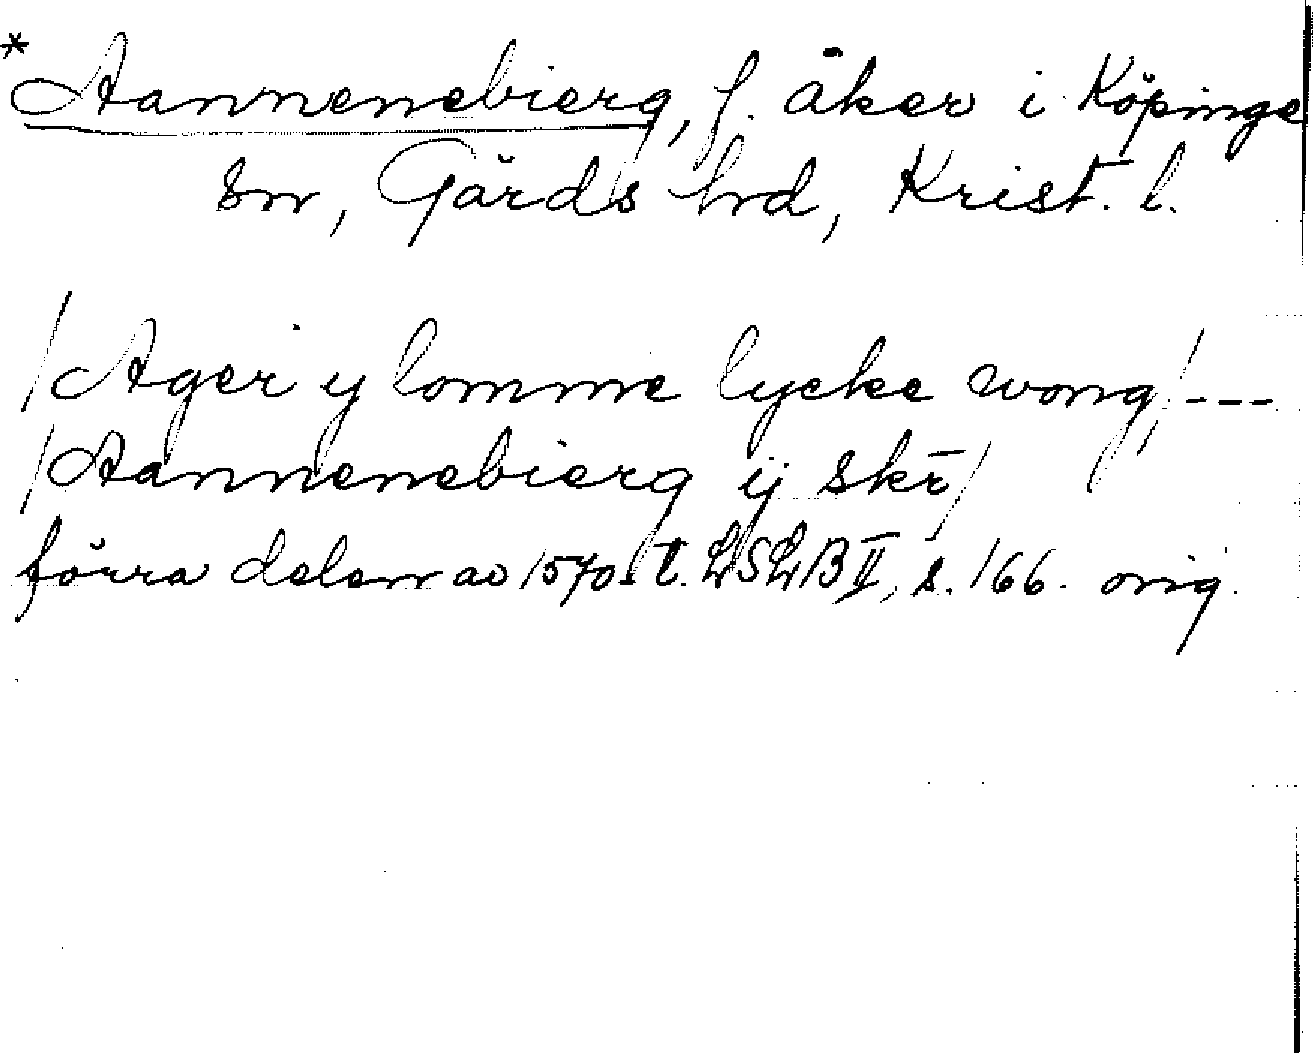 * Aannenebierg, f. åker i Köpinge
sn, Gärds hd, Krist. l.
/Ager y lomme lycke wong/---
/Aannenebierg ij skr̄/
förra delen av 1570-t. LSLB II, s. 166. orig.